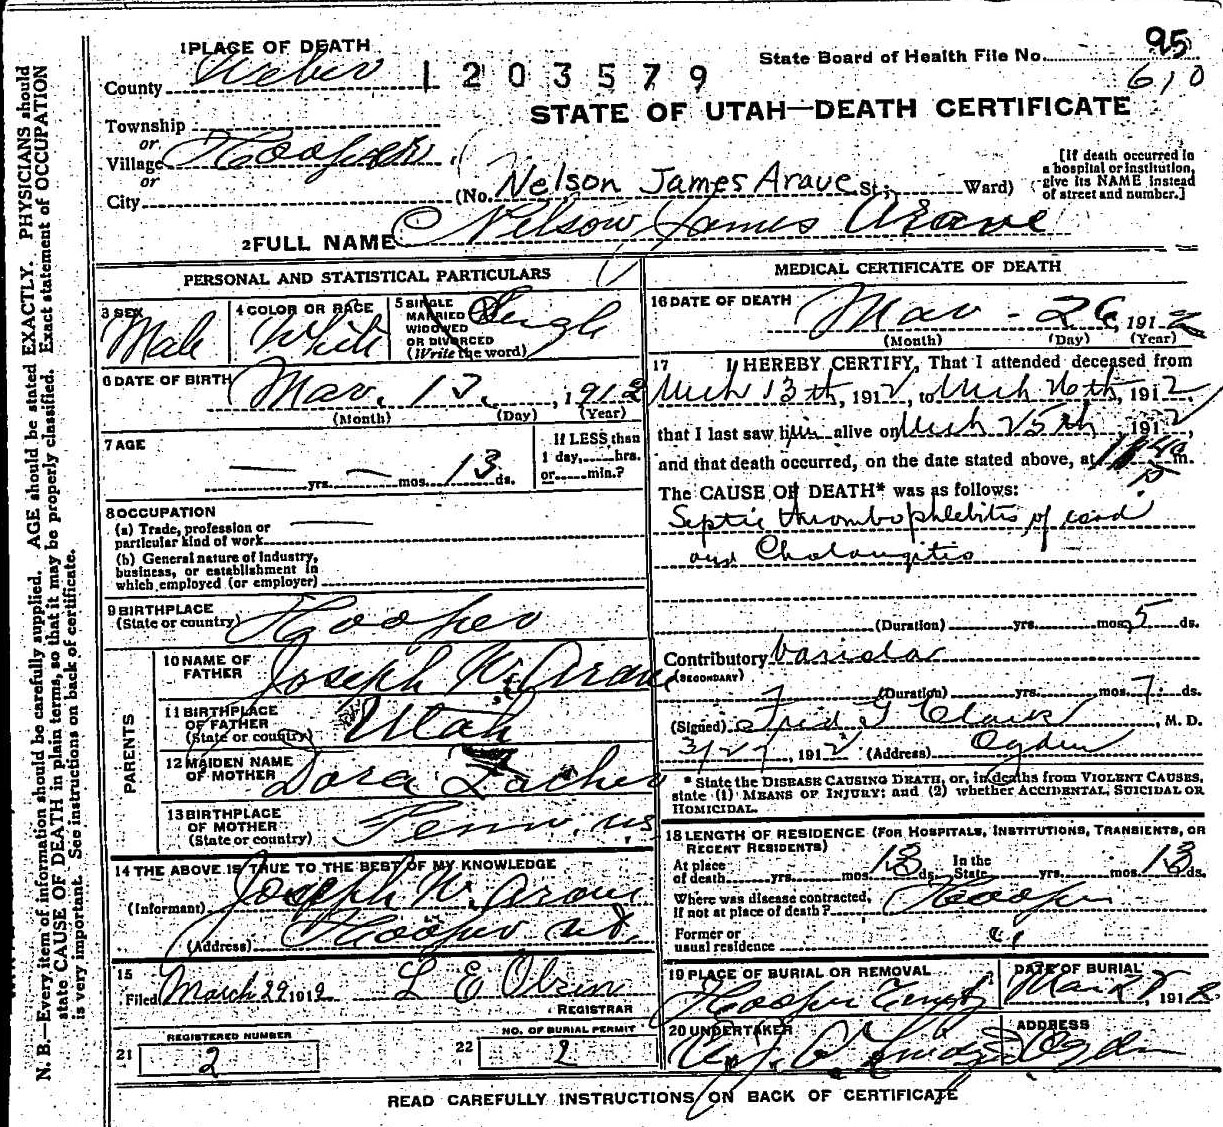 1 PLACE OF DEATH
State Board of Health File No. 95
County Weber 1203579 610
STATE OF UTAH—DEATH CERTIFICATE
Township
or
Village Hooper
or
City (No. Nelson James Arave St; Ward)
[If death occurred in
a hospital or institution,
give its NAME instead
of street and number.]
2 FULL NAME Nelson James Arave
PERSONAL AND STATISTICAL PARTICULARS
3 SEX
Male
4 COLOR OR RACE
White
5 SINGLE
MARRIED
WIDOWED
OR DIVORCED
(Write the word)
Single
6 DATE OF BIRTH
Mar. 13, 1912
(Month) (Day) (Year)
7 AGE
— yrs. — mos. 13 ds.
If LESS than
1 day, hrs.
or min.?
8 OCCUPATION
(a) Trade, profession or
particular kind of work
(b) General nature of industry,
business, or establishment in
which employed (or employer)
9 BIRTHPLACE
(State or country) Hooper
PARENTS
10 NAME OF
FATHER Joseph N. Arave
11 BIRTHPLACE
OF FATHER
(State or country) Utah
12 MAIDEN NAME
OF MOTHER Dora
13 BIRTHPLACE
OF MOTHER
(State or country) Penn. us
14 THE ABOVE IS TRUE TO THE BEST OF MY KNOWLEDGE
(Informant) Joseph N. Arave
(Address) Hooper Ut.
15
Filed March 29 1912 L E
REGISTRAR
REGISTERED NUMBER
21 2
NO. OF BURIAL PERMIT
22 2
MEDICAL CERTIFICATE OF DEATH
16 DATE OF DEATH
Mar - 26, 1912
(Month) (Day) (Year)
17 I HEREBY CERTIFY, That I attended deceased from
Mch 13th, 1912, to Mch 26th, 1912,
that I last saw him alive on Mch 25th, 1912,
and that death occurred, on the date stated above, at m.
The CAUSE OF DEATH* was as follows:
Septic thrombophlebitis of cord
and Cholangitis
(Duration) yrs. mos. 5 ds.
Contributory
(SECONDARY)
(Duration) yrs. mos. 7 ds.
(Signed) Fred G Clark, M. D.
3/27, 1912 (Address) Ogden
* State the DISEASE CAUSING DEATH, or, in deaths from VIOLENT CAUSES,
state (1) MEANS OF INJURY; and (2) whether ACCIDENTAL, SUICIDAL OR
HOMICIDAL.
18 LENGTH OF RESIDENCE (FOR HOSPITALS, INSTITUTIONS, TRANSIENTS, OR
RECENT RESIDENTS)
At place
of death yrs. mos. 13 ds.
In the
State yrs. mos. 13 ds.
Where was disease contracted,
if not at place of death? Hooper
Former or
usual residence
19 PLACE OF BURIAL OR REMOVAL
Hooper
DATE OF BURIAL
Mar 28, 1912
20 UNDERTAKER
ADDRESS
Ogden
READ CAREFULLY INSTRUCTIONS ON BACK OF CERTIFICATE
N. B.—Every item of information should be carefully supplied. AGE should be stated EXACTLY. PHYSICIANS should
state CAUSE OF DEATH in plain terms, so that it may be properly classified. Exact statement of OCCUPATION
is very important. See instructions on back of certificate.